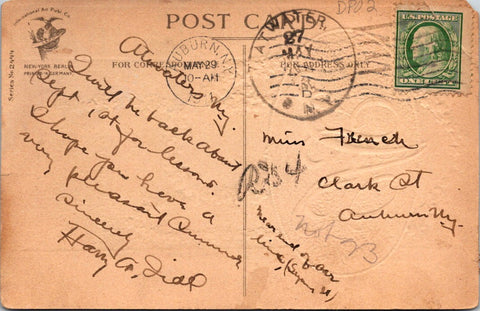 International Art Publ. Co.
NEW-YORK BERLIN
PRINTED IN GERMANY
Series No.
POST CARD
FOR CORRESPONDENCE
FOR ADDRESS ONLY
AUBURN, N.Y.
MAY 29
10-AM
ATWATER
27
MAY
N.Y.
DPO 2
U.S. POSTAGE
ONE CENT
Atwater, N.Y.
I will be back about
Sept 1st for lessons.
I hope you have a
very pleasant summer
Sincerely
Harry A.
Miss French
Clark St
Auburn N.Y.
near end of car
line
R 54
not 23